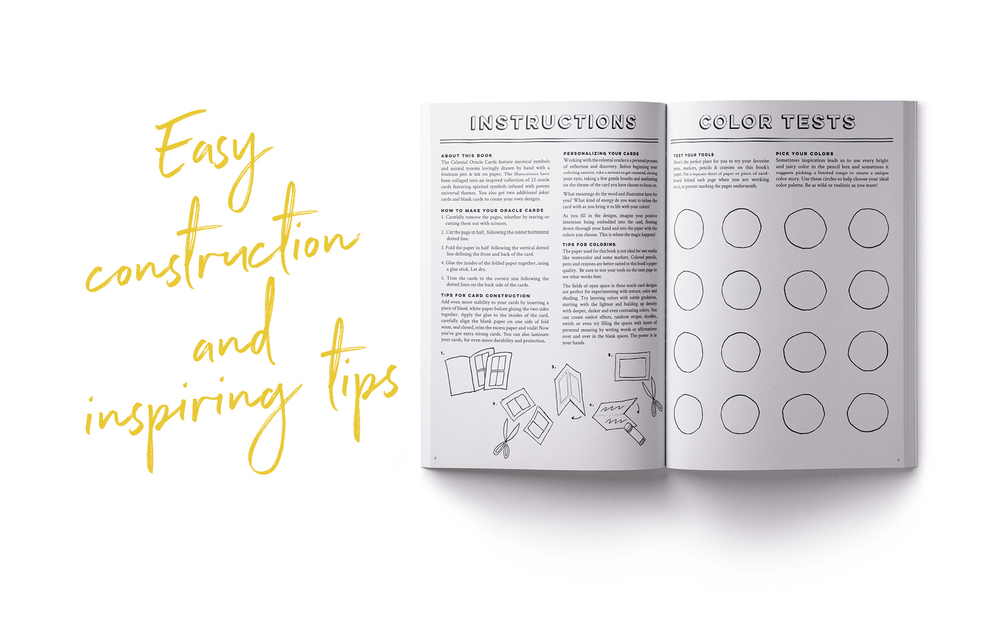 Easy
construction
and
inspiring tips
INSTRUCTIONS
ABOUT THIS BOOK
The Celestial Oracle Cards feature mystical symbols
and animal totems lovingly drawn by hand with a
fountain pen & ink on paper. The illustrations have
been collaged into an inspired collection of 22 oracle
cards featuring spirited symbols infused with potent
universal themes. You also get two additional joker
cards and blank cards to create your own designs.
HOW TO MAKE YOUR ORACLE CARDS
1. Carefully remove the pages, whether by tearing or
cutting them out with scissors.
2. Cut the page in half, following the center horizontal
dotted line.
3. Fold the paper in half following the vertical dotted
line defining the front and back of the card.
4. Glue the insides of the folded paper together, using
a glue stick. Let dry.
5. Trim the cards to the correct size following the
dotted lines on the back side of the cards.
TIPS FOR CARD CONSTRUCTION
Add even more stability to your cards by inserting a
piece of blank white paper before gluing the two sides
together. Apply the glue to the insides of the card,
carefully align the blank paper on one side of fold
seam, seal closed, trim the excess paper and voila! Now
you've got extra strong cards. You can also laminate
your cards, for even more durability and protection.
PERSONALIZING YOUR CARDS
Working with the celestial oracles is a personal process
of reflection and discovery. Before beginning your
coloring session, take a minute to get centered, closing
your eyes, taking a few gentle breaths and meditating
on the theme of the card you have chosen to focus on.
What meanings do the word and illustration have for
you? What kind of energy do you want to infuse the
card with as you bring it to life with your colors?
As you fill in the designs, imagine your positive
intention being embedded into the card, flowing
down through your hand and into the paper with the
colors you choose. This is where the magic happens!
TIPS FOR COLORING
The paper used for this book is not ideal for wet media
like watercolor and some markers. Colored pencils,
pens and crayons are better suited to this book's paper
quality. Be sure to test your tools on the next page to
see what works best.
The fields of open space in these oracle card designs
are perfect for experimenting with texture, color and
shading. Try layering colors with subtle gradation,
starting with the lightest and building up density
with deeper, darker and even contrasting colors. You
can create ombré effects, rainbow stripes, doodles,
swirls or even try filling the spaces with layers of
personal meaning by writing words or affirmations
over and over in the blank spaces. The power is in
your hands.
1.
2.
3.
4.
5.
COLOR TESTS
TEST YOUR TOOLS
Here's the perfect place for you to try your favorite
pens, markers, pencils & crayons on this book's
paper. Put a separate sheet of paper or piece of card-
board behind each page when you are working
on it, to prevent marking the pages underneath.
PICK YOUR COLORS
Sometimes inspiration leads us to use every bright
and juicy color in the pencil box and sometimes it
suggests picking a limited range to create a unique
color story. Use these circles to help choose your ideal
color palette. Be as wild or realistic as you want!